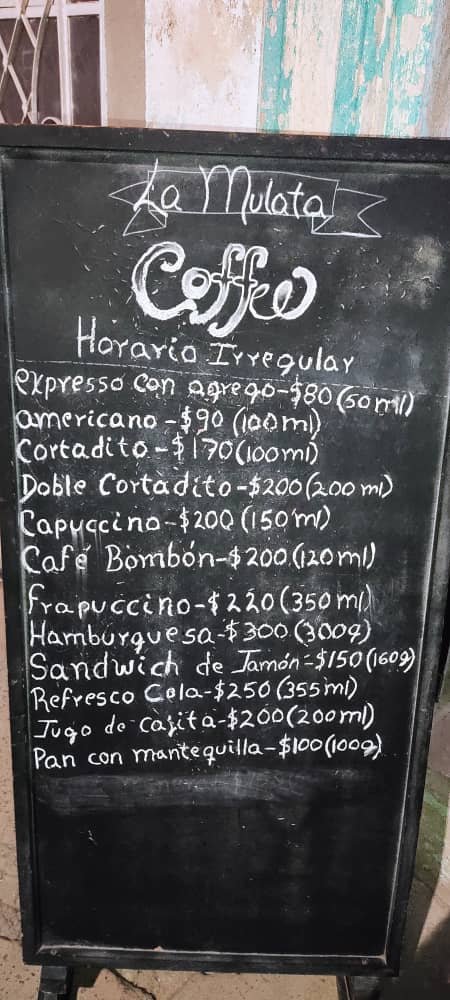 La Mulata
Coffee
Horario Irregular
expresso con agrego-$80(50ml)
americano-$90(100ml)
Cortadito-$170(100ml)
Doble Cortadito-$200(200ml)
Capuccino-$200(150ml)
Café Bombón-$200(120ml)
frapuccino-$220(350ml)
Hamburguesa-$300(300g)
Sandwich de Jamón-$150(160g)
Refresco Cola-$250(355ml)
Jugo de cajita-$200(200ml)
Pan con mantequilla-$100(100g)